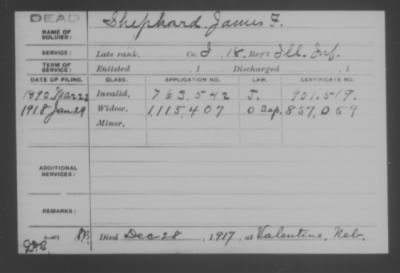 DEAD
NAME OF SOLDIER: Shephard, James F.
SERVICE: Late rank, Co. I, 18, Reg't Ill. Inf.
TERM OF SERVICE: Enlisted , 1 Discharged , 1
DATE OF FILING. CLASS. APPLICATION NO. LAW. CERTIFICATE NO.
1890 Mar 22 Invalid, 763,542 J. 701,519.
1918 Jan 29 Widow, 1,115,407 O Sep. 857,059
Minor,
ADDITIONAL SERVICES:
REMARKS:
Died Dec 28, 1917, at Valentine, Neb.